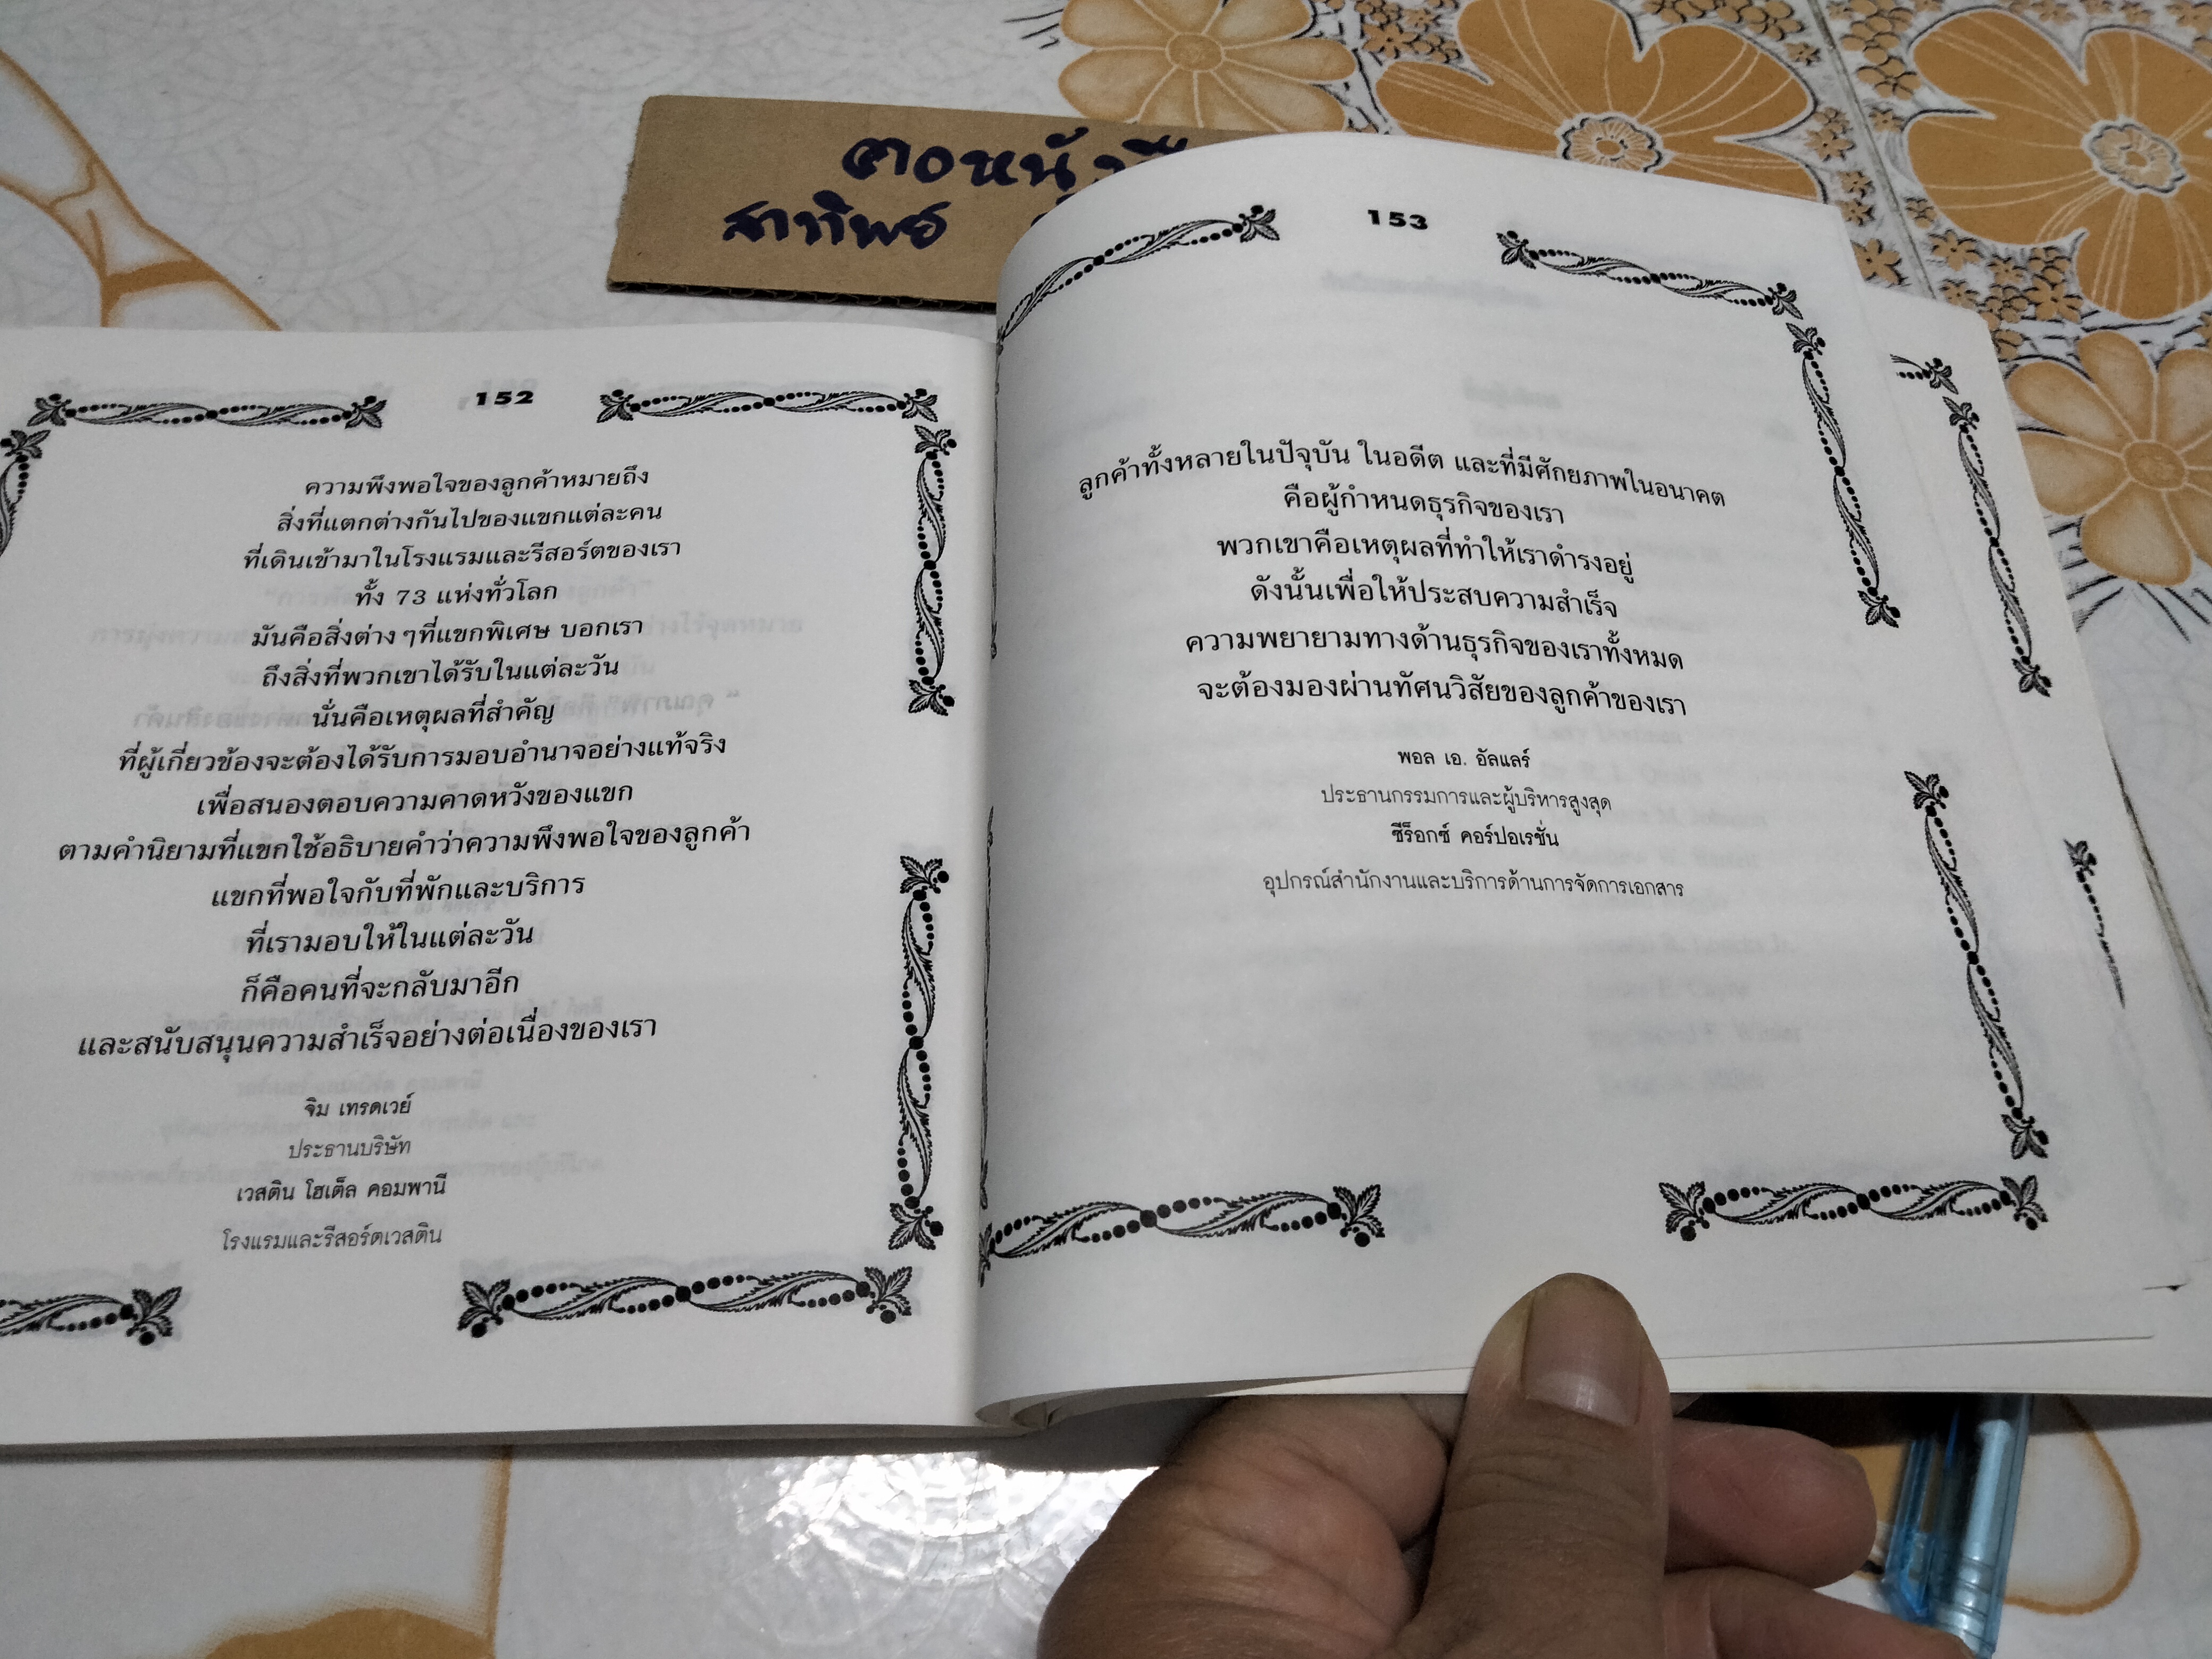 ตอหนัง
สาทิพย์
152
ความพึงพอใจของลูกค้าหมายถึง
สิ่งที่แตกต่างกันไปของแขกแต่ละคน
ที่เดินเข้ามาในโรงแรมและรีสอร์ตของเรา
ทั้ง 73 แห่งทั่วโลก
มันคือสิ่งต่าง ๆที่แขกพิเศษ บอกเรา
ถึงสิ่งที่พวกเขาได้รับในแต่ละวัน
นั่นคือเหตุผลที่สำคัญ
ที่ผู้เกี่ยวข้องจะต้องได้รับการมอบอำนาจอย่างแท้จริง
เพื่อสนองตอบความคาดหวังของแขก
ตามคำนิยามที่แขกใช้อธิบายคำว่าความพึงพอใจของลูกค้า
แขกที่พอใจกับที่พักและบริการ
ที่เรามอบให้ในแต่ละวัน
ก็คือคนที่จะกลับมาอีก
และสนับสนุนความสำเร็จอย่างต่อเนื่องของเรา
จิม เทรดเวย์
ประธานบริษัท
เวสติน โฮเต็ล คอมพานี
โรงแรมและรีสอร์ตเวสติน
153
ลูกค้าทั้งหลายในปัจจุบัน ในอดีต และที่มีศักยภาพในอนาคต
คือผู้กำหนดธุรกิจของเรา
พวกเขาคือเหตุผลที่ทำให้เราดำรงอยู่
ดังนั้นเพื่อให้ประสบความสำเร็จ
ความพยายามทางด้านธุรกิจของเราทั้งหมด
จะต้องมองผ่านทัศนวิสัยของลูกค้าของเรา
พอล เอ. อัลแลร์
ประธานกรรมการและผู้บริหารสูงสุด
ซีร็อกซ์ คอร์ปอเรชั่น
อุปกรณ์สำนักงานและบริการด้านการจัดการเอกสาร